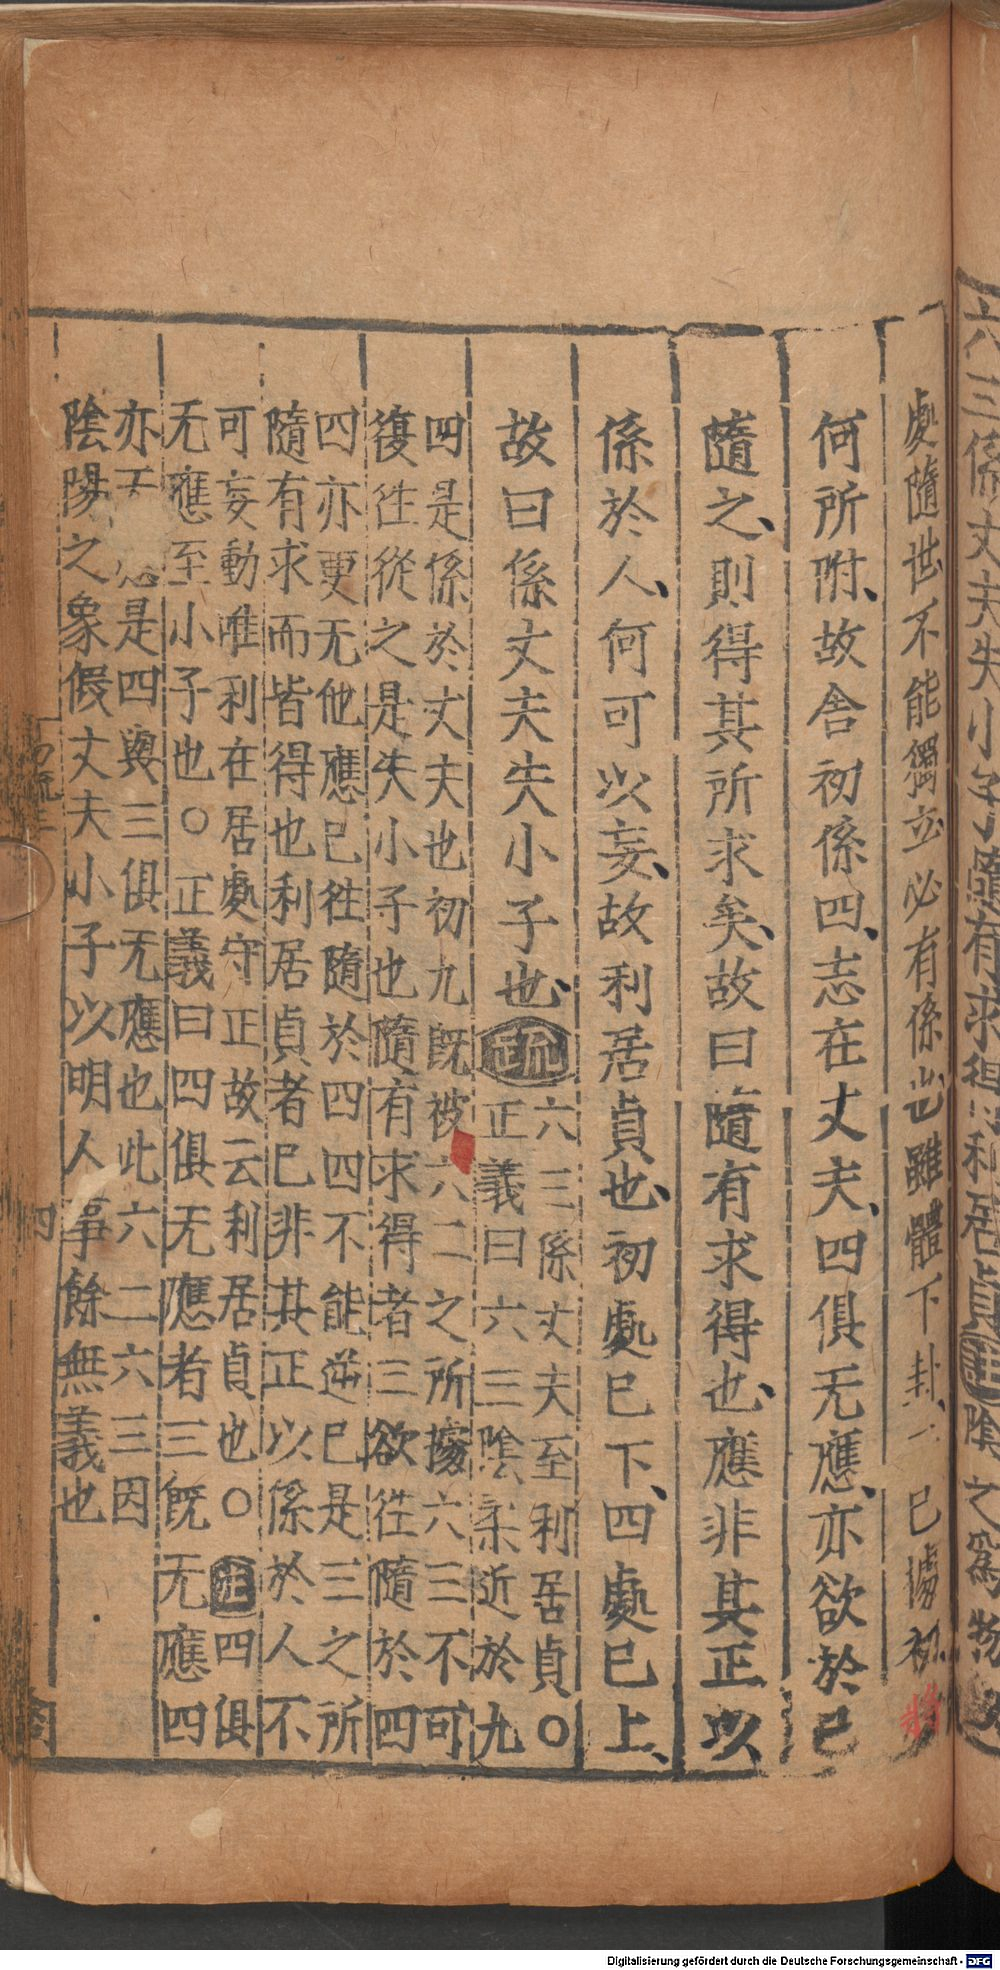 六三係丈夫失小子隨有求得利居貞 陰之爲物
處隨世不能獨立必有係也雖體下卦二已據初將
何所附故舍初係四志在丈夫四俱无應亦欲於已
隨之則得其所求矣故曰隨有求得也應非其正以
係於人何可以妄故利居貞也初處已下四處已上
故曰係丈夫失小子也 疏 六三係丈夫至利居貞○
正義曰六三陰柔近於九
四是係於丈夫也初九旣被六二之所據六三不可
復往從之是失小子也隨有求得者三欲往隨於四
四亦更无他應已往隨於四四不能逆已是三之所
隨有求而皆得也利居貞者已非其正以係於人不
可妄動唯利在居處守正故云利居貞也○ 注 四俱
无應至小子也○正義曰四俱无應者三旣无應四
亦 是四與三俱无應也此六二六三因
陰陽之象假丈夫小子以明人事餘無義也
四
Digitalisierung gefördert durch die Deutsche Forschungsgemeinschaft - DFG